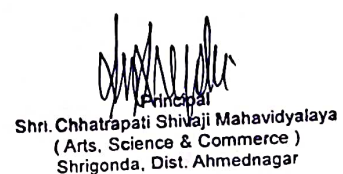 Principal
Shri. Chhatrapati Shivaji Mahavidyalaya
( Arts, Science & Commerce )
Shrigonda, Dist. Ahmednagar